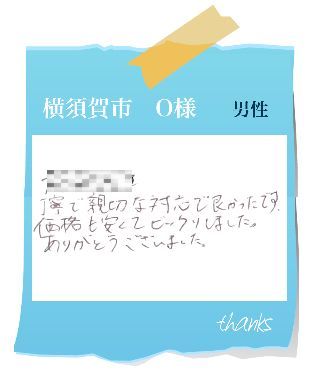 横須賀市 O様 男性
寧で親切な対応で良かったです。
価格も安くてビックリしました。
ありがとうございました。
thanks